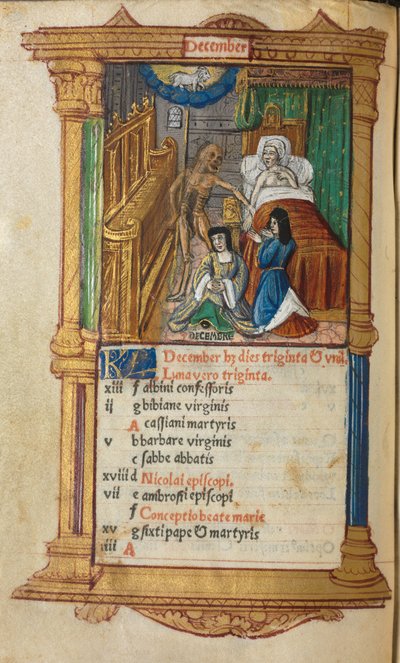 December
DECEMBRE
December hȝ dies triginta & vnū.
Luna vero triginta.
xiii f albini confessoris
ij g bibiane virginis
A cassiani martyris
v b barbare virginis
c sabbe abbatis
xviii d Nicolai episcopi.
vii e ambrosii episcopi.
f Conceptio beate marie
xv g sixti pape & martyris
iiii A